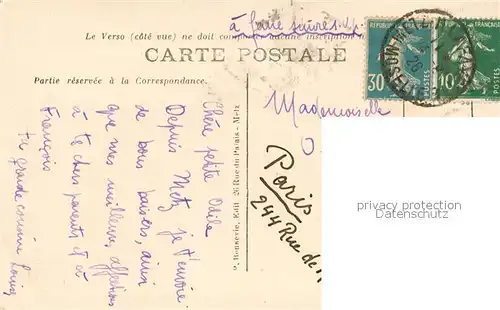 Le Verso (côté vue) ne doit comporter aucune inscription
à faire suivre s.v.p.
CARTE POSTALE
Partie réservée à la Correspondance.
Chère petite Odile
Depuis Metz je t'envoie
de bons baisers, ainsi
que mes meilleures affections
à tes chers parents et à
François
ta grande cousine Louise
Edit. 26 Rue du Palais - Metz
Mademoiselle
O
Paris
244 Rue de
30
POSTES
10
POSTES
privacy protection
Datenschutz